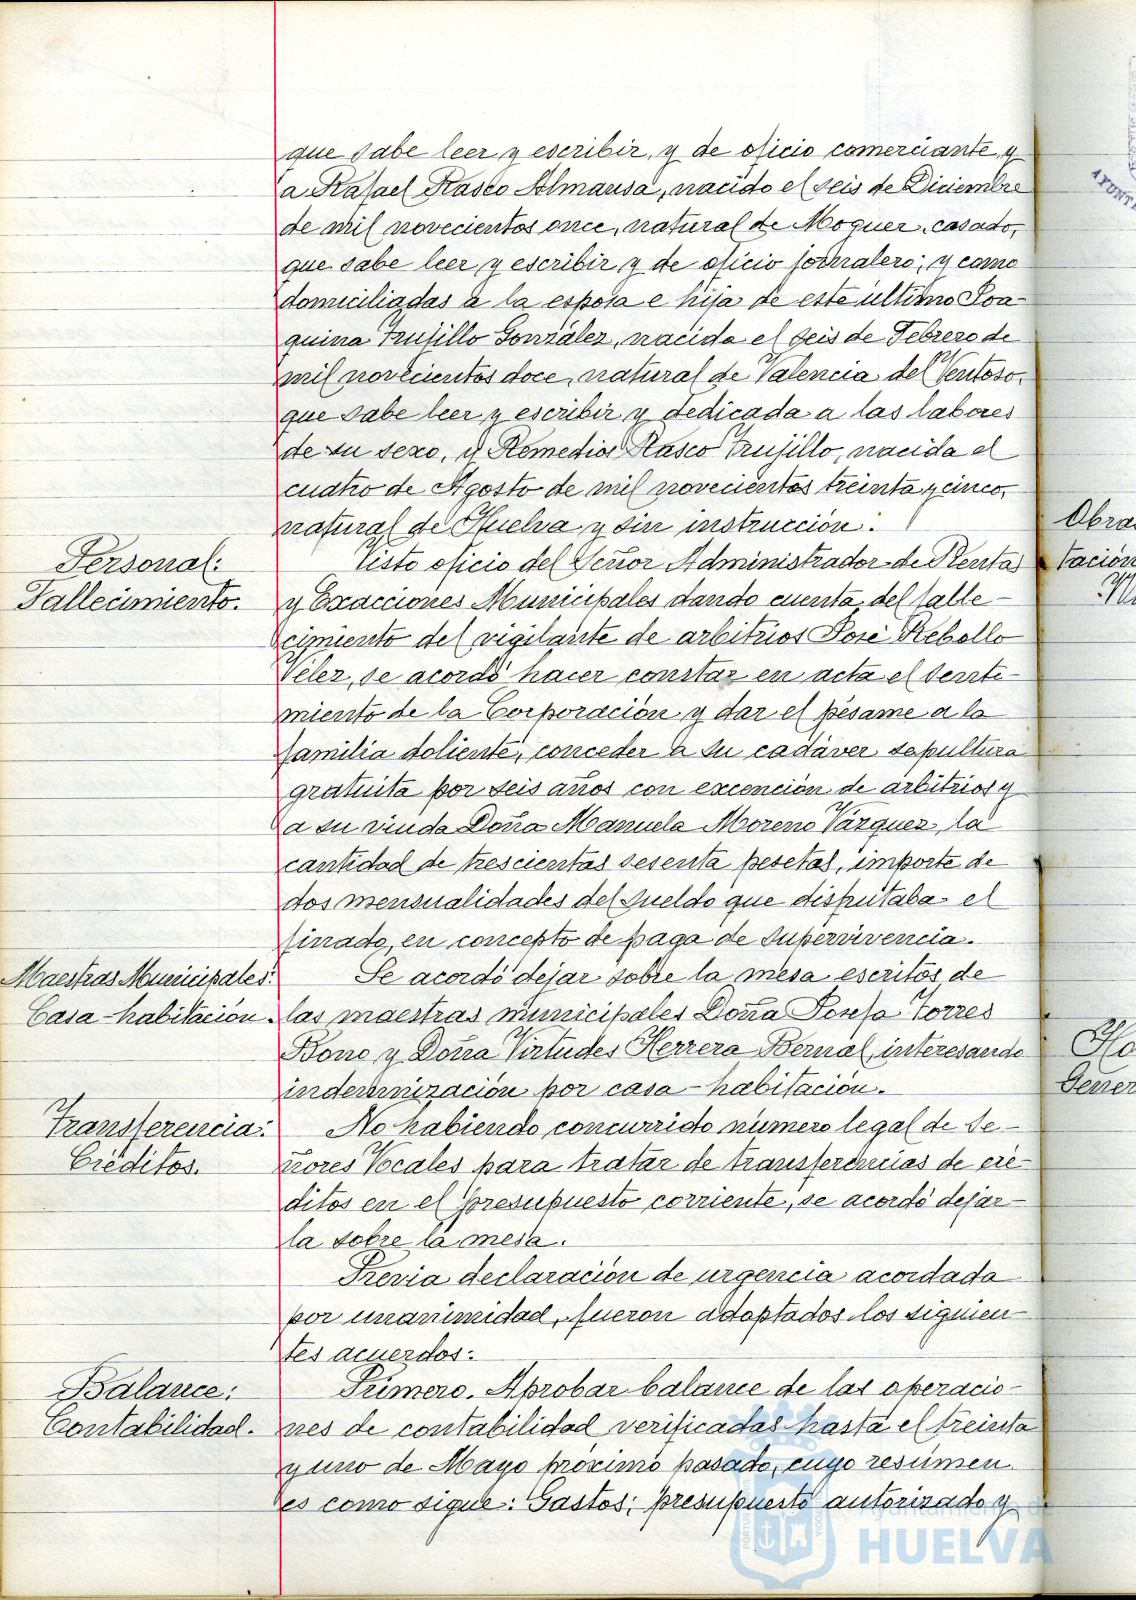 que sabe leer y escribir, y de oficio comerciante, y
a Rafael Rasco Almansa, nacido el seis de Diciembre
de mil novecientos once, natural de Moguer, casado,
que sabe leer y escribir y de oficio jornalero; y como
domiciliadas a la esposa e hija de este último Joa-
quina Trujillo González, nacida el seis de Febrero de
mil novecientos doce, natural de Valencia del Ventoso,
que sabe leer y escribir y dedicada a las labores
de su sexo, y Remedios Rasco Trujillo, nacida el
cuatro de Agosto de mil novecientos treinta y cinco,
natural de Huelva y sin instrucción.
Personal:
Fallecimiento.
Visto oficio del Señor Administrador de Rentas
y Exacciones Municipales dando cuenta del falle-
cimiento del vigilante de arbitrios José Rebollo
Vélez, se acordó hacer constar en acta el senti-
miento de la Corporación y dar el pésame a la
familia doliente, conceder a su cadáver sepultura
gratuita por seis años con excención de arbitrios y
a su viuda Doña Manuela Moreno Vázquez, la
cantidad de trescientas sesenta pesetas, importe de
dos mensualidades del sueldo que disfrutaba el
finado, en concepto de paga de supervivencia.
Maestras Municipales:
Casa-habitación.
Se acordó dejar sobre la mesa escritos de
las maestras municipales Doña Josefa Torres
Bono y Doña Virtudes Herrera Bernal, interesando
indemnización por casa-habitación.
Transferencia:
Créditos.
No habiendo concurrido número legal de Se-
ñores Vocales para tratar de transferencias de cré-
ditos en el presupuesto corriente, se acordó dejar-
la sobre la mesa.
Previa declaración de urgencia acordada
por unanimidad, fueron adoptados los siguien-
tes acuerdos:
Balance:
Contabilidad.
Primero. Aprobar balance de las operacio-
nes de contabilidad verificadas hasta el treinta
y uno de Mayo próximo pasado, cuyo resúmen
es como sigue: Gastos; presupuesto autorizado y
Obras
tación
Gener
AYUNT
Ayuntamiento de
HUELVA